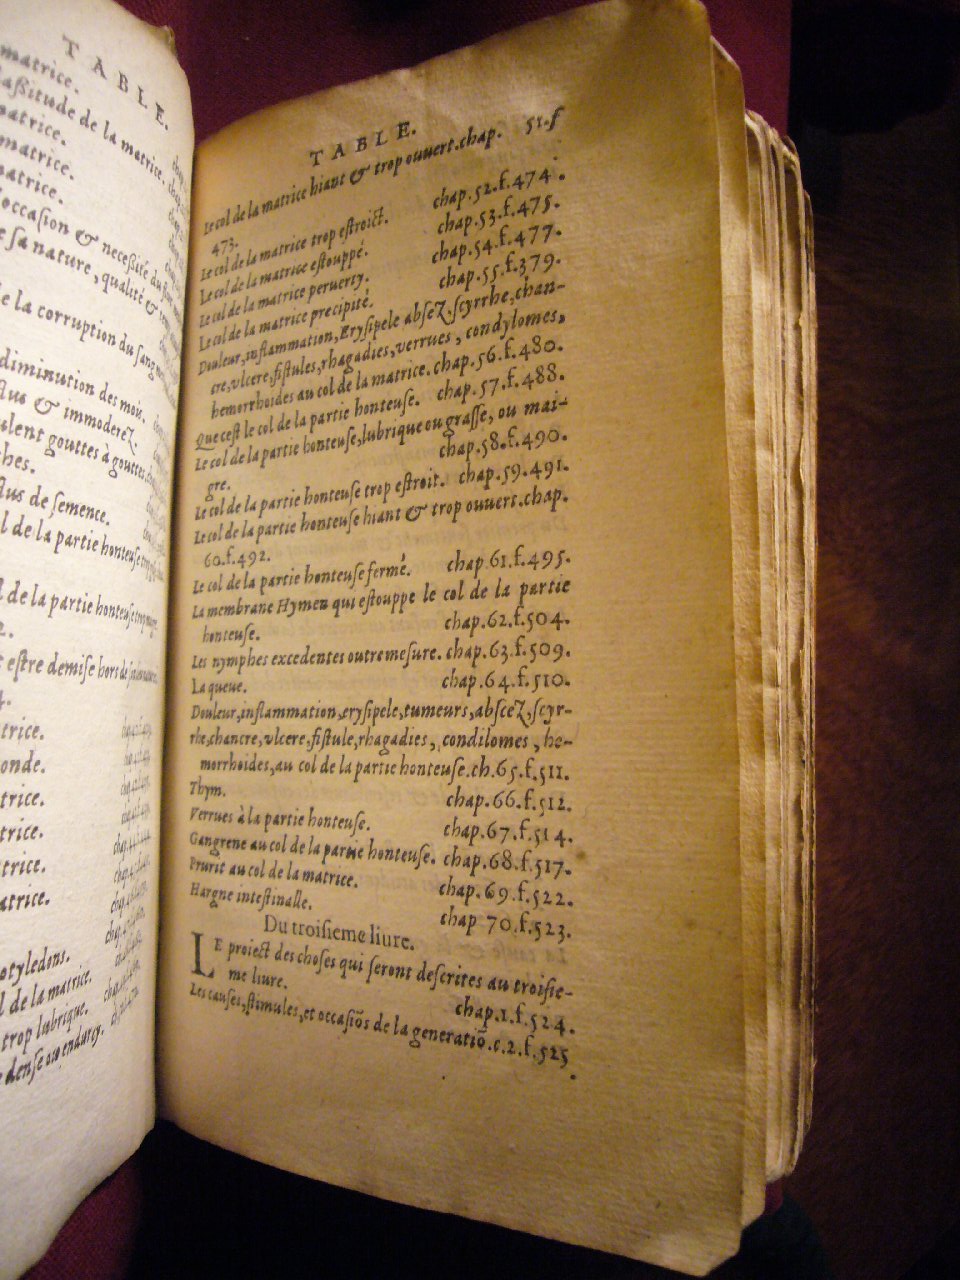 TABLE.
matrice.
aßitude de la matrice.
matrice.
matrice.
matrice.
occasion & necesité du
sa nature, qualité &
la corruption du sang
diminution des mois.
flus & immoderez.
gouttes à gouttes
flus de semence.
de la partie honteuse
de la partie honteuse
estre demise hors de
trice.
onde.
trice.
trice.
trice.
atrice.
otyledins.
l de la matrice.
trop lubrique.
dense ou endurcy.
TABLE.
Le col de la matrice hiant & trop ouuert.chap. 51.f
473.
Le col de la matrice trop estroict. chap.52.f.474.
Le col de la matrice estouppé. chap.53.f.475.
Le col de la matrice peruerty. chap.54.f.477.
Le col de la matrice precipité. chap.55.f.379.
Douleur,inflammation,Erysipele abseZ.scyrrhe,chan-
cre,vlcere,fistules,rhagadies,verrues, condylomes,
hemorrhoides au col de la matrice.chap.56.f.480.
Que cest le col de la partie honteuse. chap.57.f.488.
Le col de la partie honteuse,lubrique ou grasse, ou mai-
gre. chap.58.f.490.
Le col de la partie honteuse trop estroit. chap.59.491.
Le col de la partie honteuse hiant & trop ouuert.chap.
60.f.492.
Le col de la partie honteuse fermé. chap.61.f.495.
La membrane Hymen qui estouppe le col de la partie
honteuse. chap.62.f.504.
Les nymphes excedentes outre mesure. chap.63.f.509.
La queue. chap.64.f.510.
Douleur,inflammation,erysipele,tumeurs,absceZ,scyr-
rhe,chancre,vlcere,fistule,rhagadies, condilomes, he-
morrhoides,au col de la partie honteuse.ch.65.f.511.
Thym. chap.66.f.512.
Verrues à la partie honteuse. chap.67.f.514.
Gangrene au col de la partie honteuse. chap.68.f.517.
Prurit au col de la matrice. chap.69.f.522.
Hargne intestinalle. chap 70.f.523.
Du troisieme liure.
LE proiect des choses qui seront descrites au troisie-
me liure. chap.1.f.524.
Les causes,stimules,et occasiõs de la generatiõ.c.2.f.525